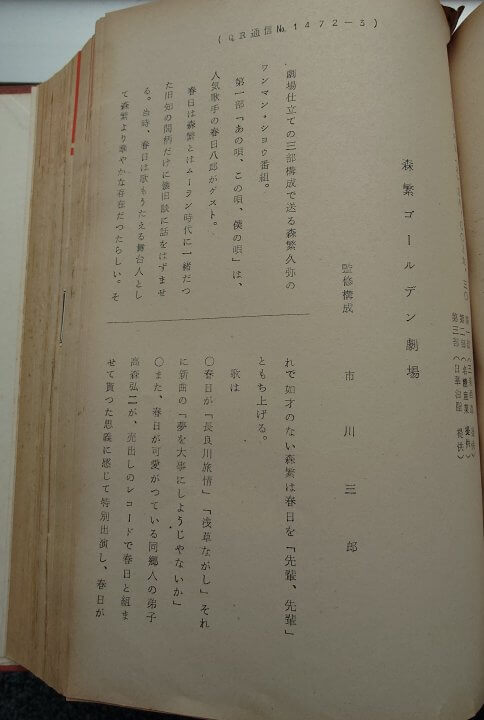 (QR通信№1472-3)
森繁ゴールデン劇場
第一部(
第二部(
提供)
第三部(
提供)
監修構成　市川三郎
劇場仕立ての三部構成で送る森繁久弥の
ワンマン・ショウ番組。
第一部「あの唄、この唄、僕の唄」は、
人気歌手の春日八郎がゲスト。
春日は森繁とはムーラン時代に一緒だつ
た旧知の間柄だけに懐旧談に話をはずませ
る。当時、春日は歌もうたえる舞台人とし
て森繁より華やかな存在だつたらしい。そ
れで如才のない森繁は春日を「先輩、先輩」
ともち上げる。
歌は
○春日が「長良川旅情」「浅草ながし」それ
に新曲の「夢を大事にしようじやないか」
○また、春日が可愛がつている同郷人の弟子
高森弘二が、売出しのレコードで春日と組ま
せて貰つた恩義に感じて特別出演し、春日が